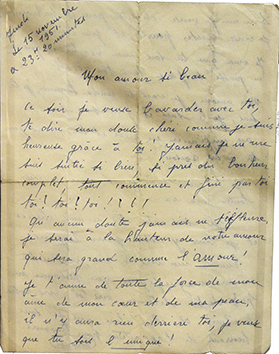 Jeudi
Le 15 novembre
1951.
à 23 H 20 minutes
Mon amour si beau
Ce soir je veux bavarder avec toi,
te dire mon doudou chéri comme je suis
heureuse grâce à toi ! Jamais je ne me
suis sentie si bien, si près du bonheur
complet, tout commence et finit par toi
toi ! toi ! toi !
Qu'aucun doute jamais ne t'effleure
je serai à la hauteur de notre amour
qui sera grand comme l'Amour !
Je t'aime de toute la force de mon
âme de mon cœur et de ma peau,
il n'y aura rien derrière toi, je veux
que tu sois l'unique !